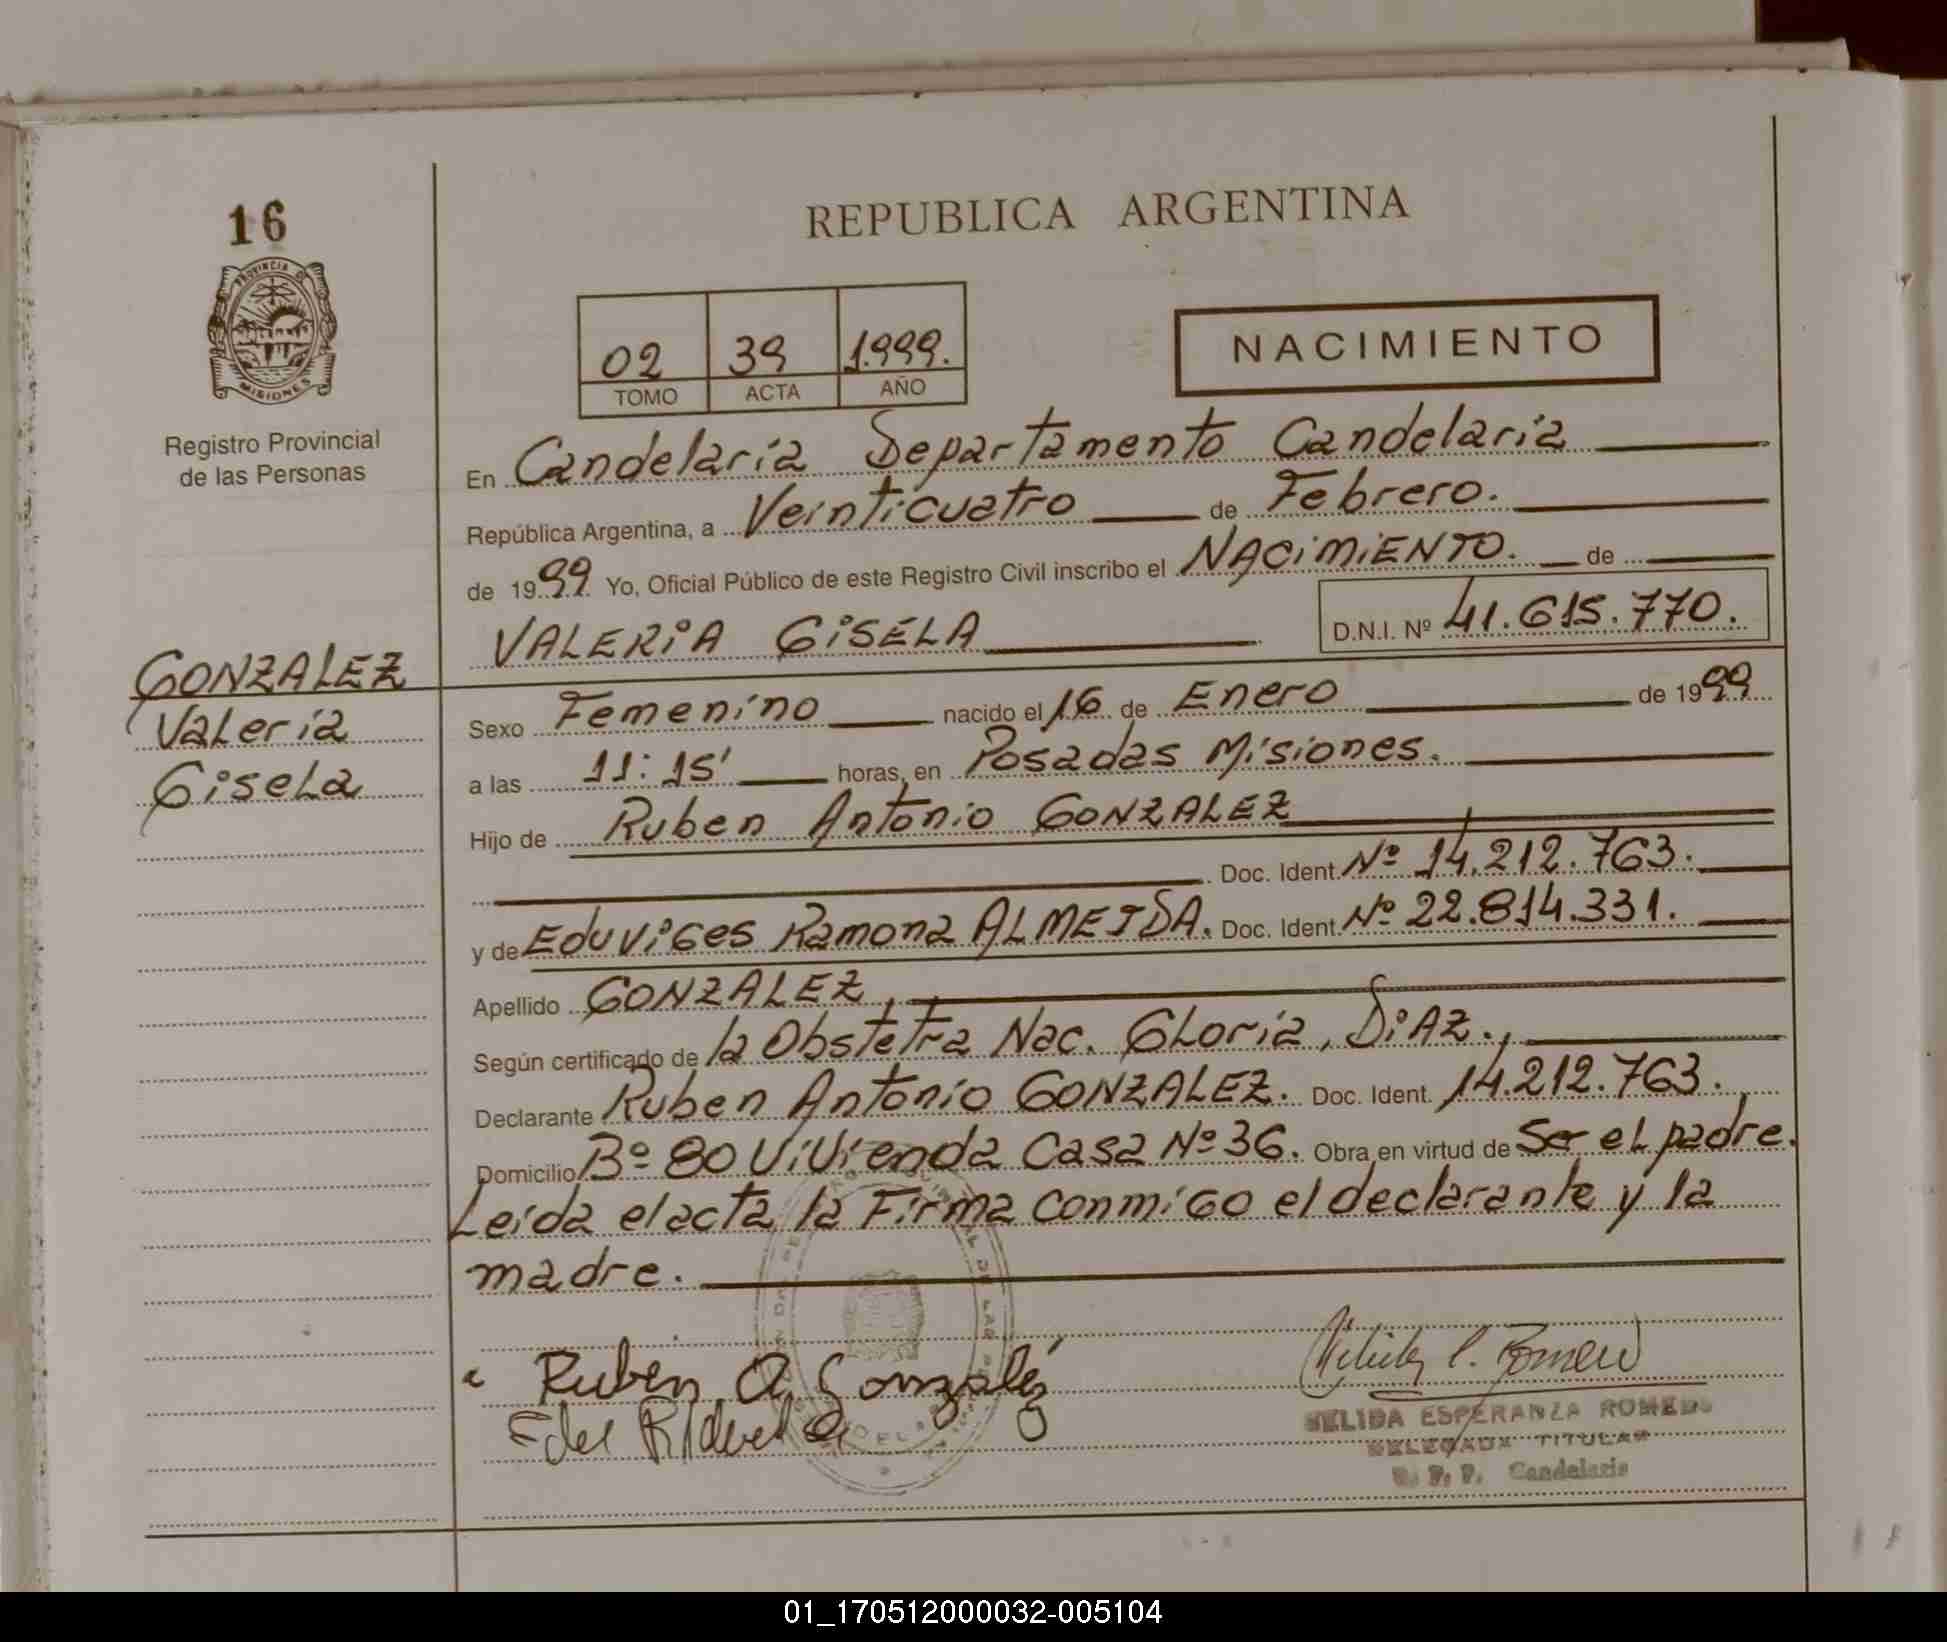 16
PROVINCIA DE
MISIONES
Registro Provincial
de las Personas
GONZALEZ
Valeria
Gisela
REPUBLICA ARGENTINA
02 39 1.999.
TOMO ACTA AÑO
NACIMIENTO
En Candelaria Departamento Candelaria
República Argentina, a Veinticuatro de Febrero.
de 1999 Yo, Oficial Público de este Registro Civil inscribo el NACIMIENTO. de
VALERIA GISELA D.N.I. Nº 41.615.770.
Sexo Femenino nacido el 16 de Enero de 1999
a las 11:15' horas, en Posadas Misiones.
Hijo de Ruben Antonio GONZALEZ
Doc. Ident. Nº 14.212.763.
y de Eduviges Ramona ALMEIDA. Doc. Ident. Nº 22.814.331.
Apellido GONZALEZ,
Según certificado de la Obstetra Nac. Gloria, DIAZ.,
Declarante Ruben Antonio GONZALEZ. Doc. Ident. 14.212.763.
Domicilio Bº 80 Vivienda Casa Nº 36. Obra en virtud de Ser el padre.
Leida el acta la Firma conmigo el declarante y la
madre.
Ruben A. Gonzalez
NELIDA ESPERANZA ROMERO
DELEGADA TITULAR
R. P. P. Candelaria
01_170512000032-005104